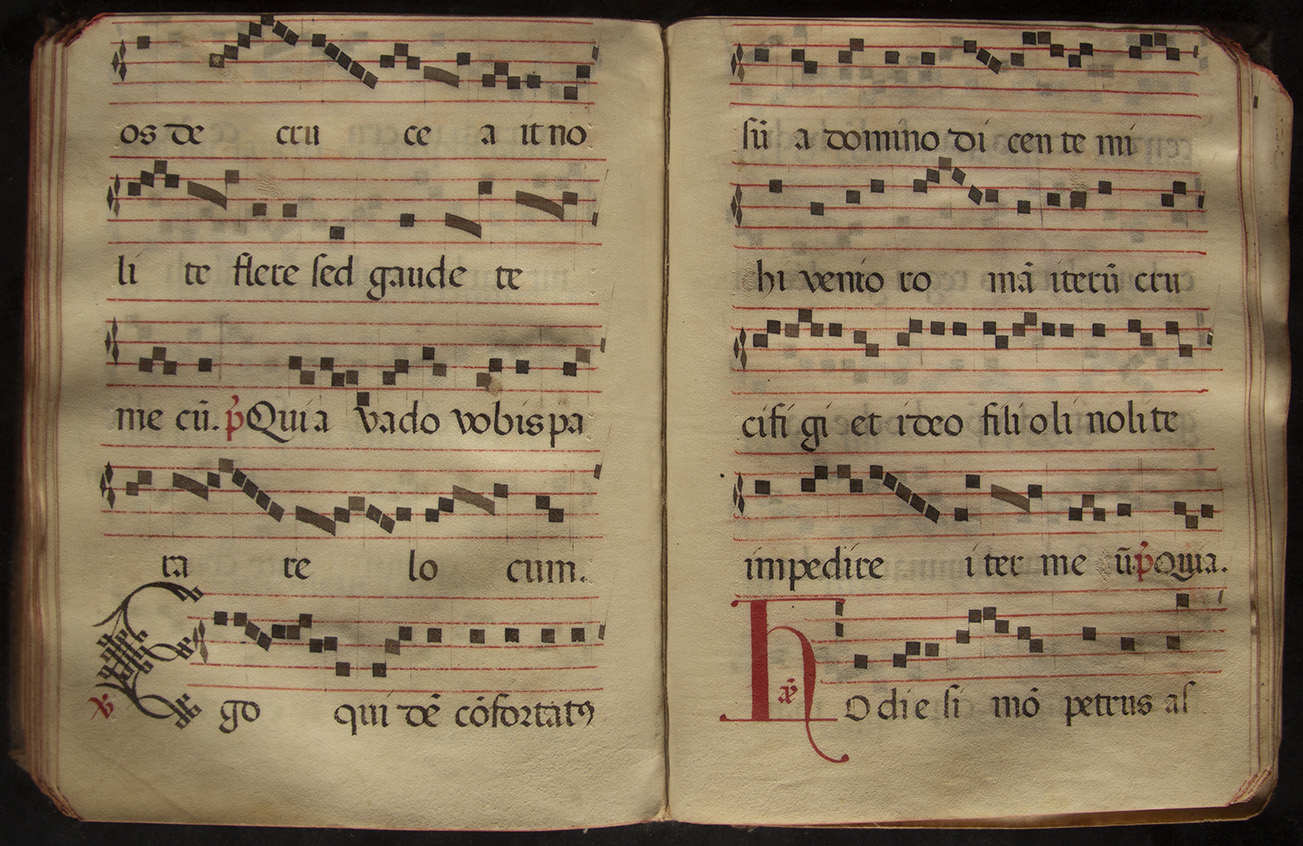 os de cru ce a it no
li te flere sed gaude te
me cū. p̄ Quia vado vobis pa
ra re lo cum.
℣ Ego qui dē cōfortatꝰ
sū a domino di cen te mi
hi venio ro mā iterū cru
cifi gi et ideo fili oli noli te
impedire i ter me ū p̄ Quia.
Hodie si mō petrus as